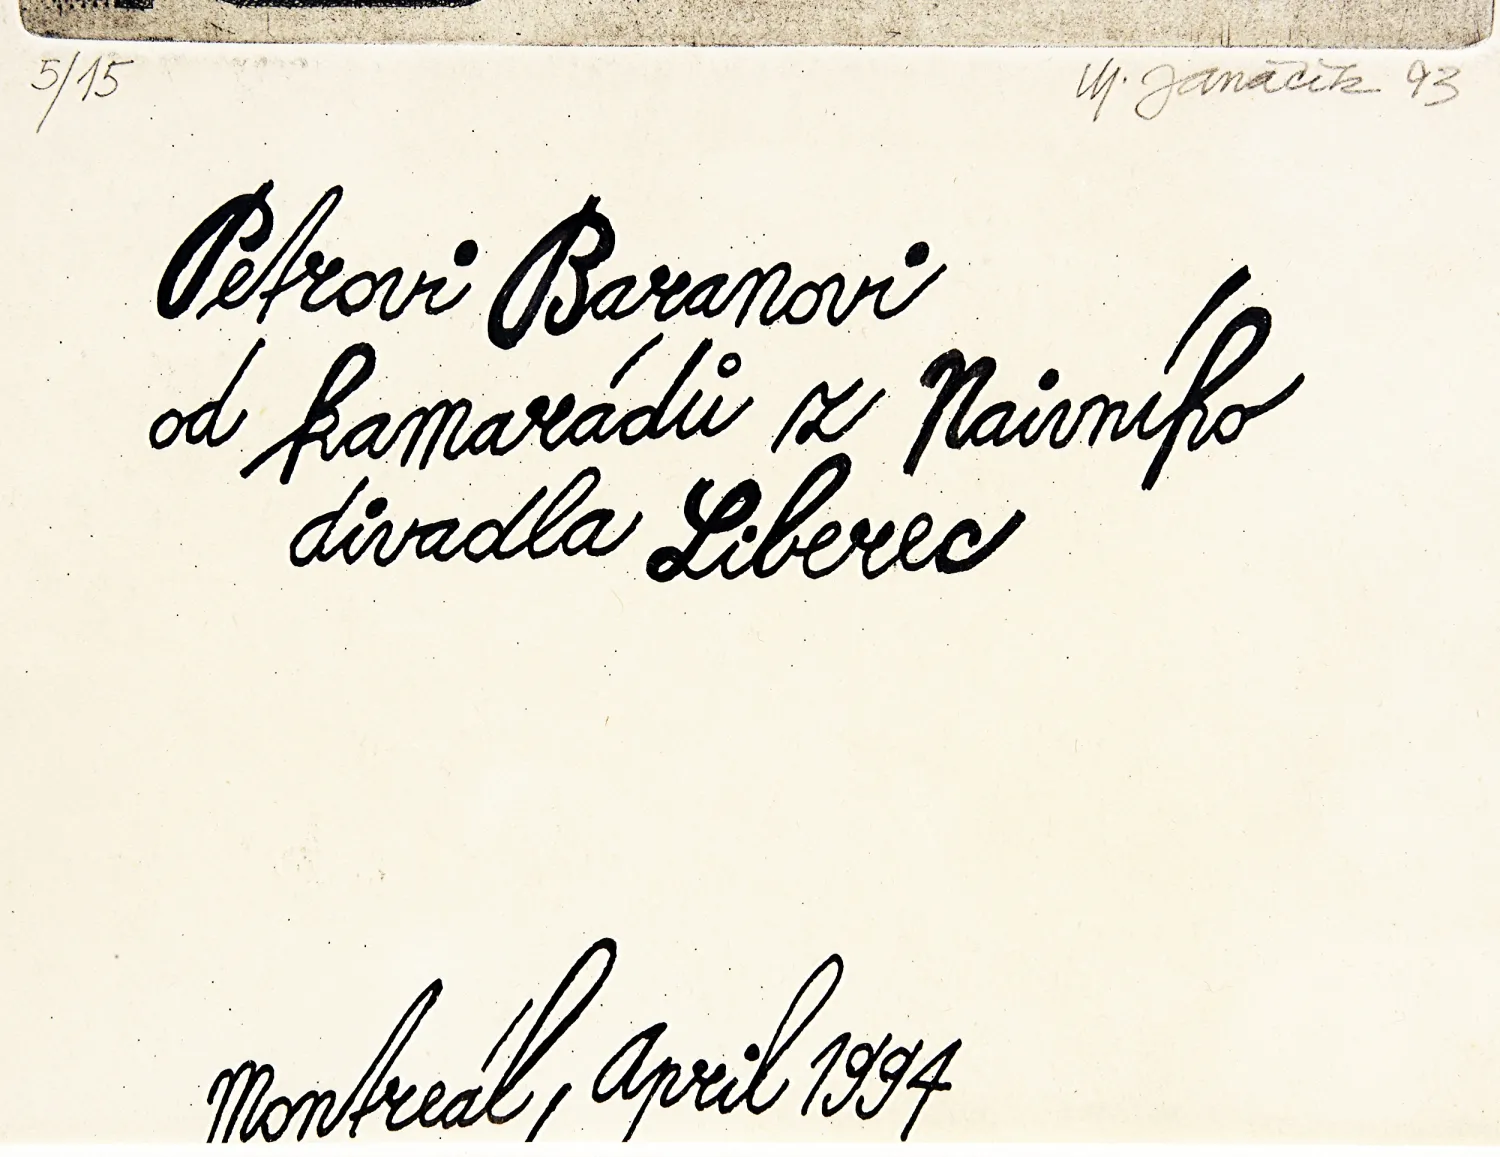 5/15 M. Janáčik 93
Petrovi Baranovi
od kamarádů z Naivního
divadla Liberec
Montreál, April 1994